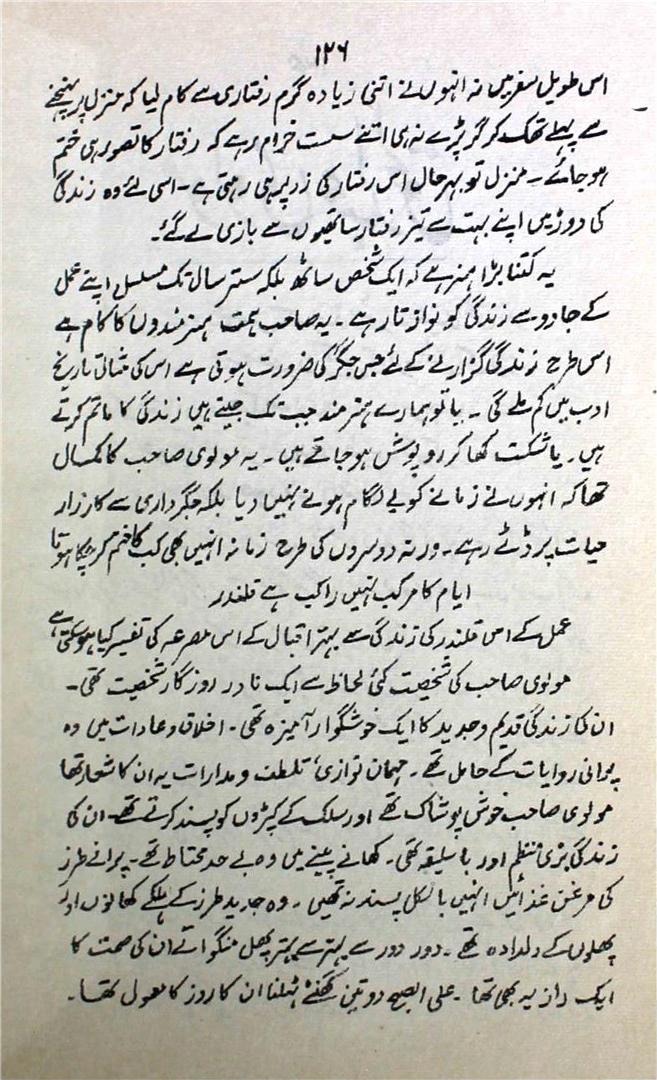 ۱۲۶
اس طویل سفر میں نہ انہوں نے اتنی زیادہ گرم رفتاری سے کام لیا کہ منزل پر پہنچنے
سے پہلے تھک کر گر پڑے نہ ہی اتنے سست خرام رہے کہ رفتار کا تصور ہی ختم
ہو جائے۔ منزل تو بہر حال اس رفتار کی زد پر ہی رہتی ہے۔ اسی لئے وہ زندگی
کی دوڑ میں اپنے بہت سے تیز رفتار ساتھیوں سے بازی لے گئے۔
یہ کتنا بڑا ہنر ہے کہ ایک شخص ساٹھ بلکہ ستر سال تک مسلسل اپنے عمل
کے جادو سے زندگی کو نوازتا رہے۔ یہ صاحب ہمت ہنر مندوں کا کام ہے
اس طرح زندگی گزارنے کے لئے جس جگر کی ضرورت ہوتی ہے اس کی مثالی تاریخ
ادب میں کم ملے گی۔ یا تو ہمارے ہنر مند جب تک جیتے ہیں زندگی کا ماتم کرتے
ہیں۔ یا شکست کھا کر روپوش ہو جاتے ہیں۔ یہ مولوی صاحب کا کمال
تھا کہ انہوں نے زمانے کو بے لگام ہونے نہیں دیا بلکہ جگرداری سے کارزار
حیات پر ڈٹے رہے۔ ورنہ دوسروں کی طرح زمانہ انہیں بھی کب کا ختم کر چکا ہوتا
ایام کا مرکب نہیں راکب ہے قلندر
عمل کے اس قلندر کی زندگی سے بہتر اقبال کے اس مصرعہ کی تفسیر کیا ہو سکتی ہے
مولوی صاحب کی شخصیت کئی لحاظ سے ایک نادر روزگار شخصیت تھی۔
ان کی زندگی قدیم و جدید کا ایک خوشگوار آمیزہ تھی۔ اخلاق و عادات میں وہ
پرانی روایات کے حامل تھے۔ مہمان نوازی، تلطف و مدارات یہ ان کا شعار تھا
مولوی صاحب خوش پوشاک تھے اور سلک کے کپڑوں کو پسند کرتے تھے۔ ان کی
زندگی بڑی منظم اور با سلیقہ تھی۔ کھانے پینے میں وہ بے حد محتاط تھے۔ پرانے طرز
کی مرغن غذائیں انہیں بالکل پسند نہ تھیں۔ وہ جدید طرز کے ہلکے کھانوں اور
پھلوں کے دلدادہ تھے۔ دور دور سے بہتر سے بہتر پھل منگواتے ان کی صحت کا
ایک راز یہ بھی تھا۔ علی الصبح دو تین گھنٹے ٹہلنا ان کا روز کا معمول تھا۔